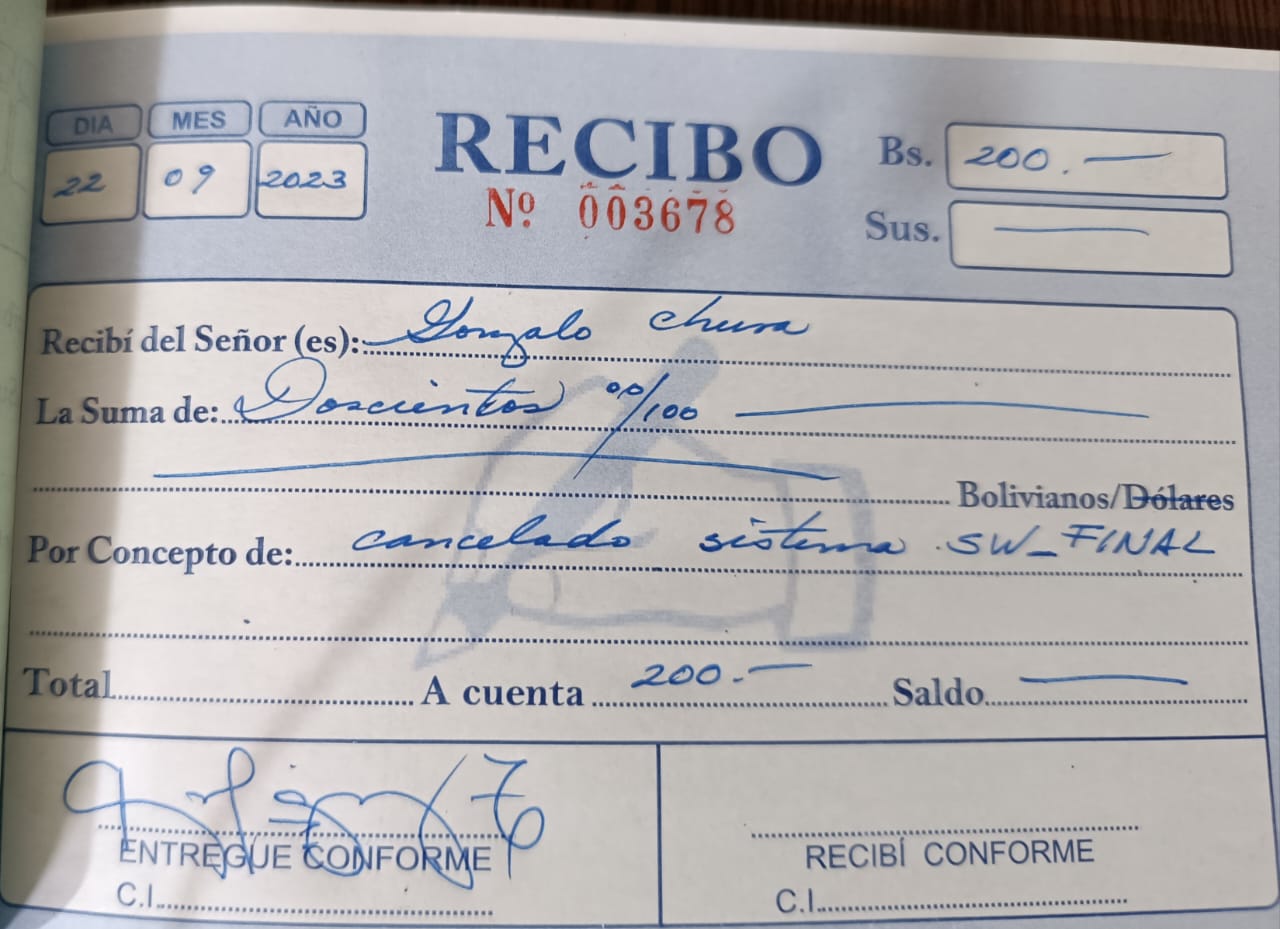 DIA MES AÑO
22 09 2023
RECIBO
Nº 003678
Bs. 200.—
Sus. —
Recibí del Señor (es): Gonzalo Chura
La Suma de: Doscientos 00/100 —
— Bolivianos/Dólares
Por Concepto de: cancelado sistema SW_FINAL
Total A cuenta 200.— Saldo —
ENTREGUE CONFORME
C.I.
RECIBÍ CONFORME
C.I.